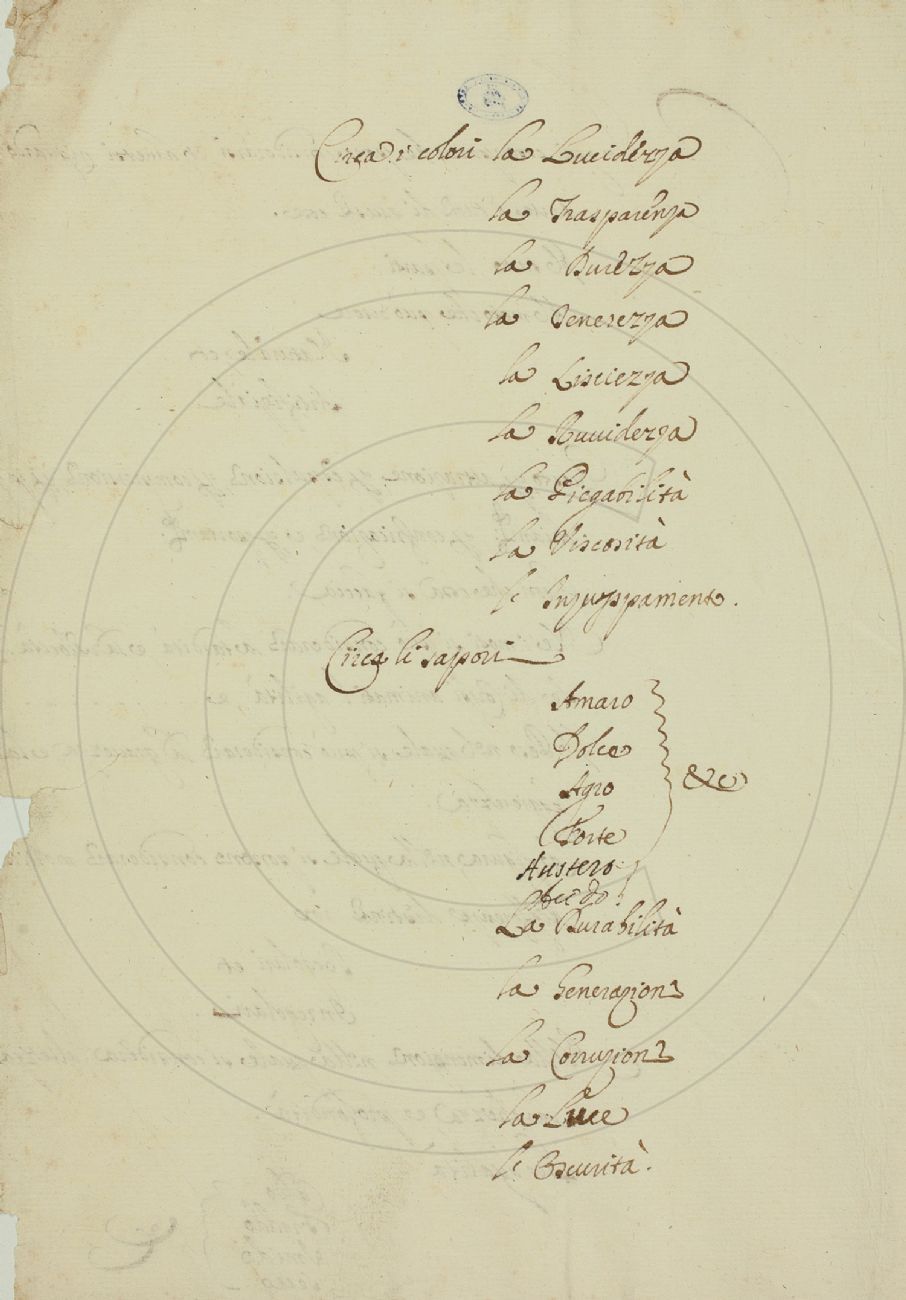 Circa i colori la Lucidezza
la Trasparenza
la Durezza
la Tenerezza
la Lisciezza
la Ruuidezza
la Piegabilità
la Viscosità
l'
Circa li sapori
Amaro
Dolce
Agro &c
Forte
Austero
Acido
La Durabilità
la Generazione
la Corruzione
la Luce
l' Oscurità.